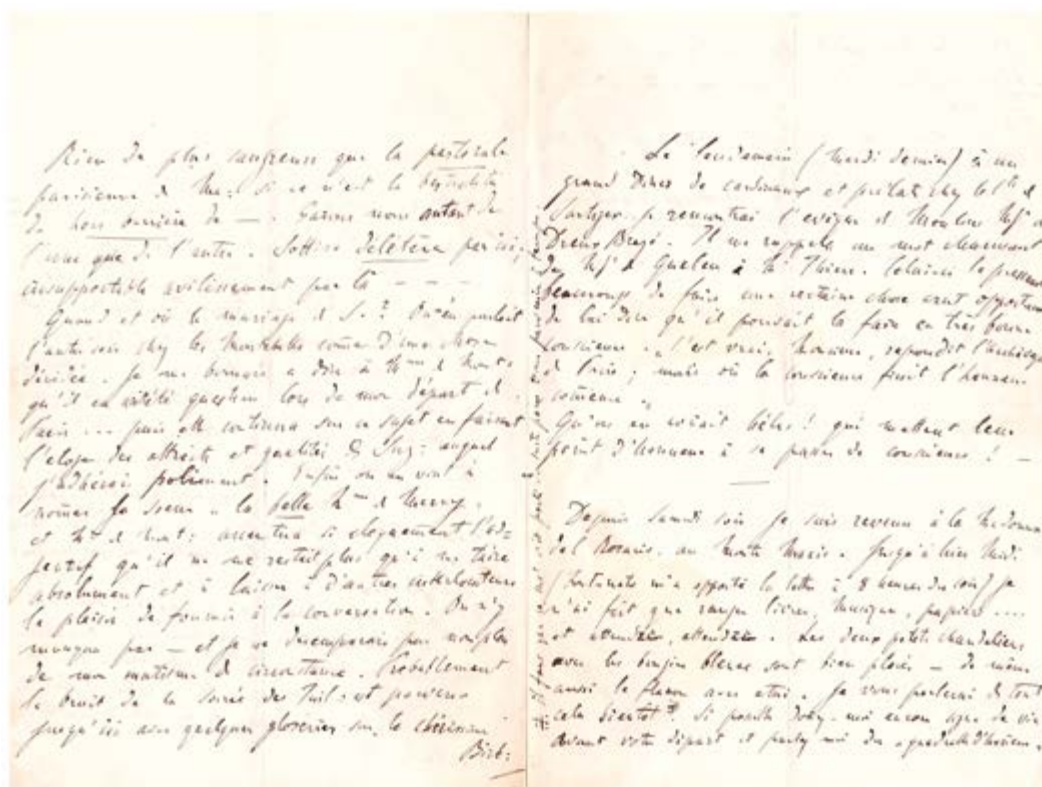 Rien de plus saugrenu que la pastorale
parisienne de Me: si ce n'est la bestialité
du hors barrière de — . Garons nous autant de
l'une que de l'autre. Sottise délétère par ici,
insupportable avilissement par là - - - -
Quand et où le mariage d S.? On en parlait
l'autre soir chez les comme d'une chose
décidée. Je me bornais a dire à Mme d Mont:
qu'il en été question lors de mon départ de
Paris ... puis elle continua sur ce sujet en faisant
l'éloge des attraits et qualités de Suz: auquel
j'adhérai poliment. Enfin on en vint à
nommer sa soeur « la belle Mme d
et Mme d Mont: accentua si eloquemment l'ad-
jectif qu'il ne me restait plus qu'à me taire
absolument et à laisser à d'autres interlocuteurs
le plaisir de fournir à la conversation. On n'y
manqua pas — et je ne décomposais pas non plus
de mon mutisme de circonstance. Probablement
le bruit de la soirée des Tuil: est parvenu
jusqu'ici avec quelques gloseries sur le
Le lendemain (Mardi dernier) à un
grand diner de cardinaux et prélats chez le Cte d
Sartiges je rencontrai l'evêque de Moulins Mgr d
Dreux Brezé. Il me rappela un mot charmant
de Mgr de Quelen à Mr Thiers. Celui ci le pressant
beaucoup de faire une certaine chose crut opportun
de lui dire qu'il pouvait la faire en très bonne
conscience. « C'est vrai, Monsieur, repondit l'archevêque
de Paris; mais où la conscience finit l'honneur
commence »
Qu'on en voit bêler! qui mettent leur
point d'honneur à se passer de conscience! —
Depuis samedi soir je suis revenu à la Madonna
del Rosario, au Monte Mario. Jusqu'à hier Midi
(Fortunato m'a apporté la lettre à 8 heures du soir) je
n'ai fait que ranger livres, musique, papiers ....
et attendre, attendre. Les deux petits chandeliers
avec les bougies bleues sont bien placés — de même
aussi le flacon avec étui. Je vous parlerai de tout
cela bientôt #. Si possible donnez-moi encore signe de vie
avant votre départ et parlez moi du